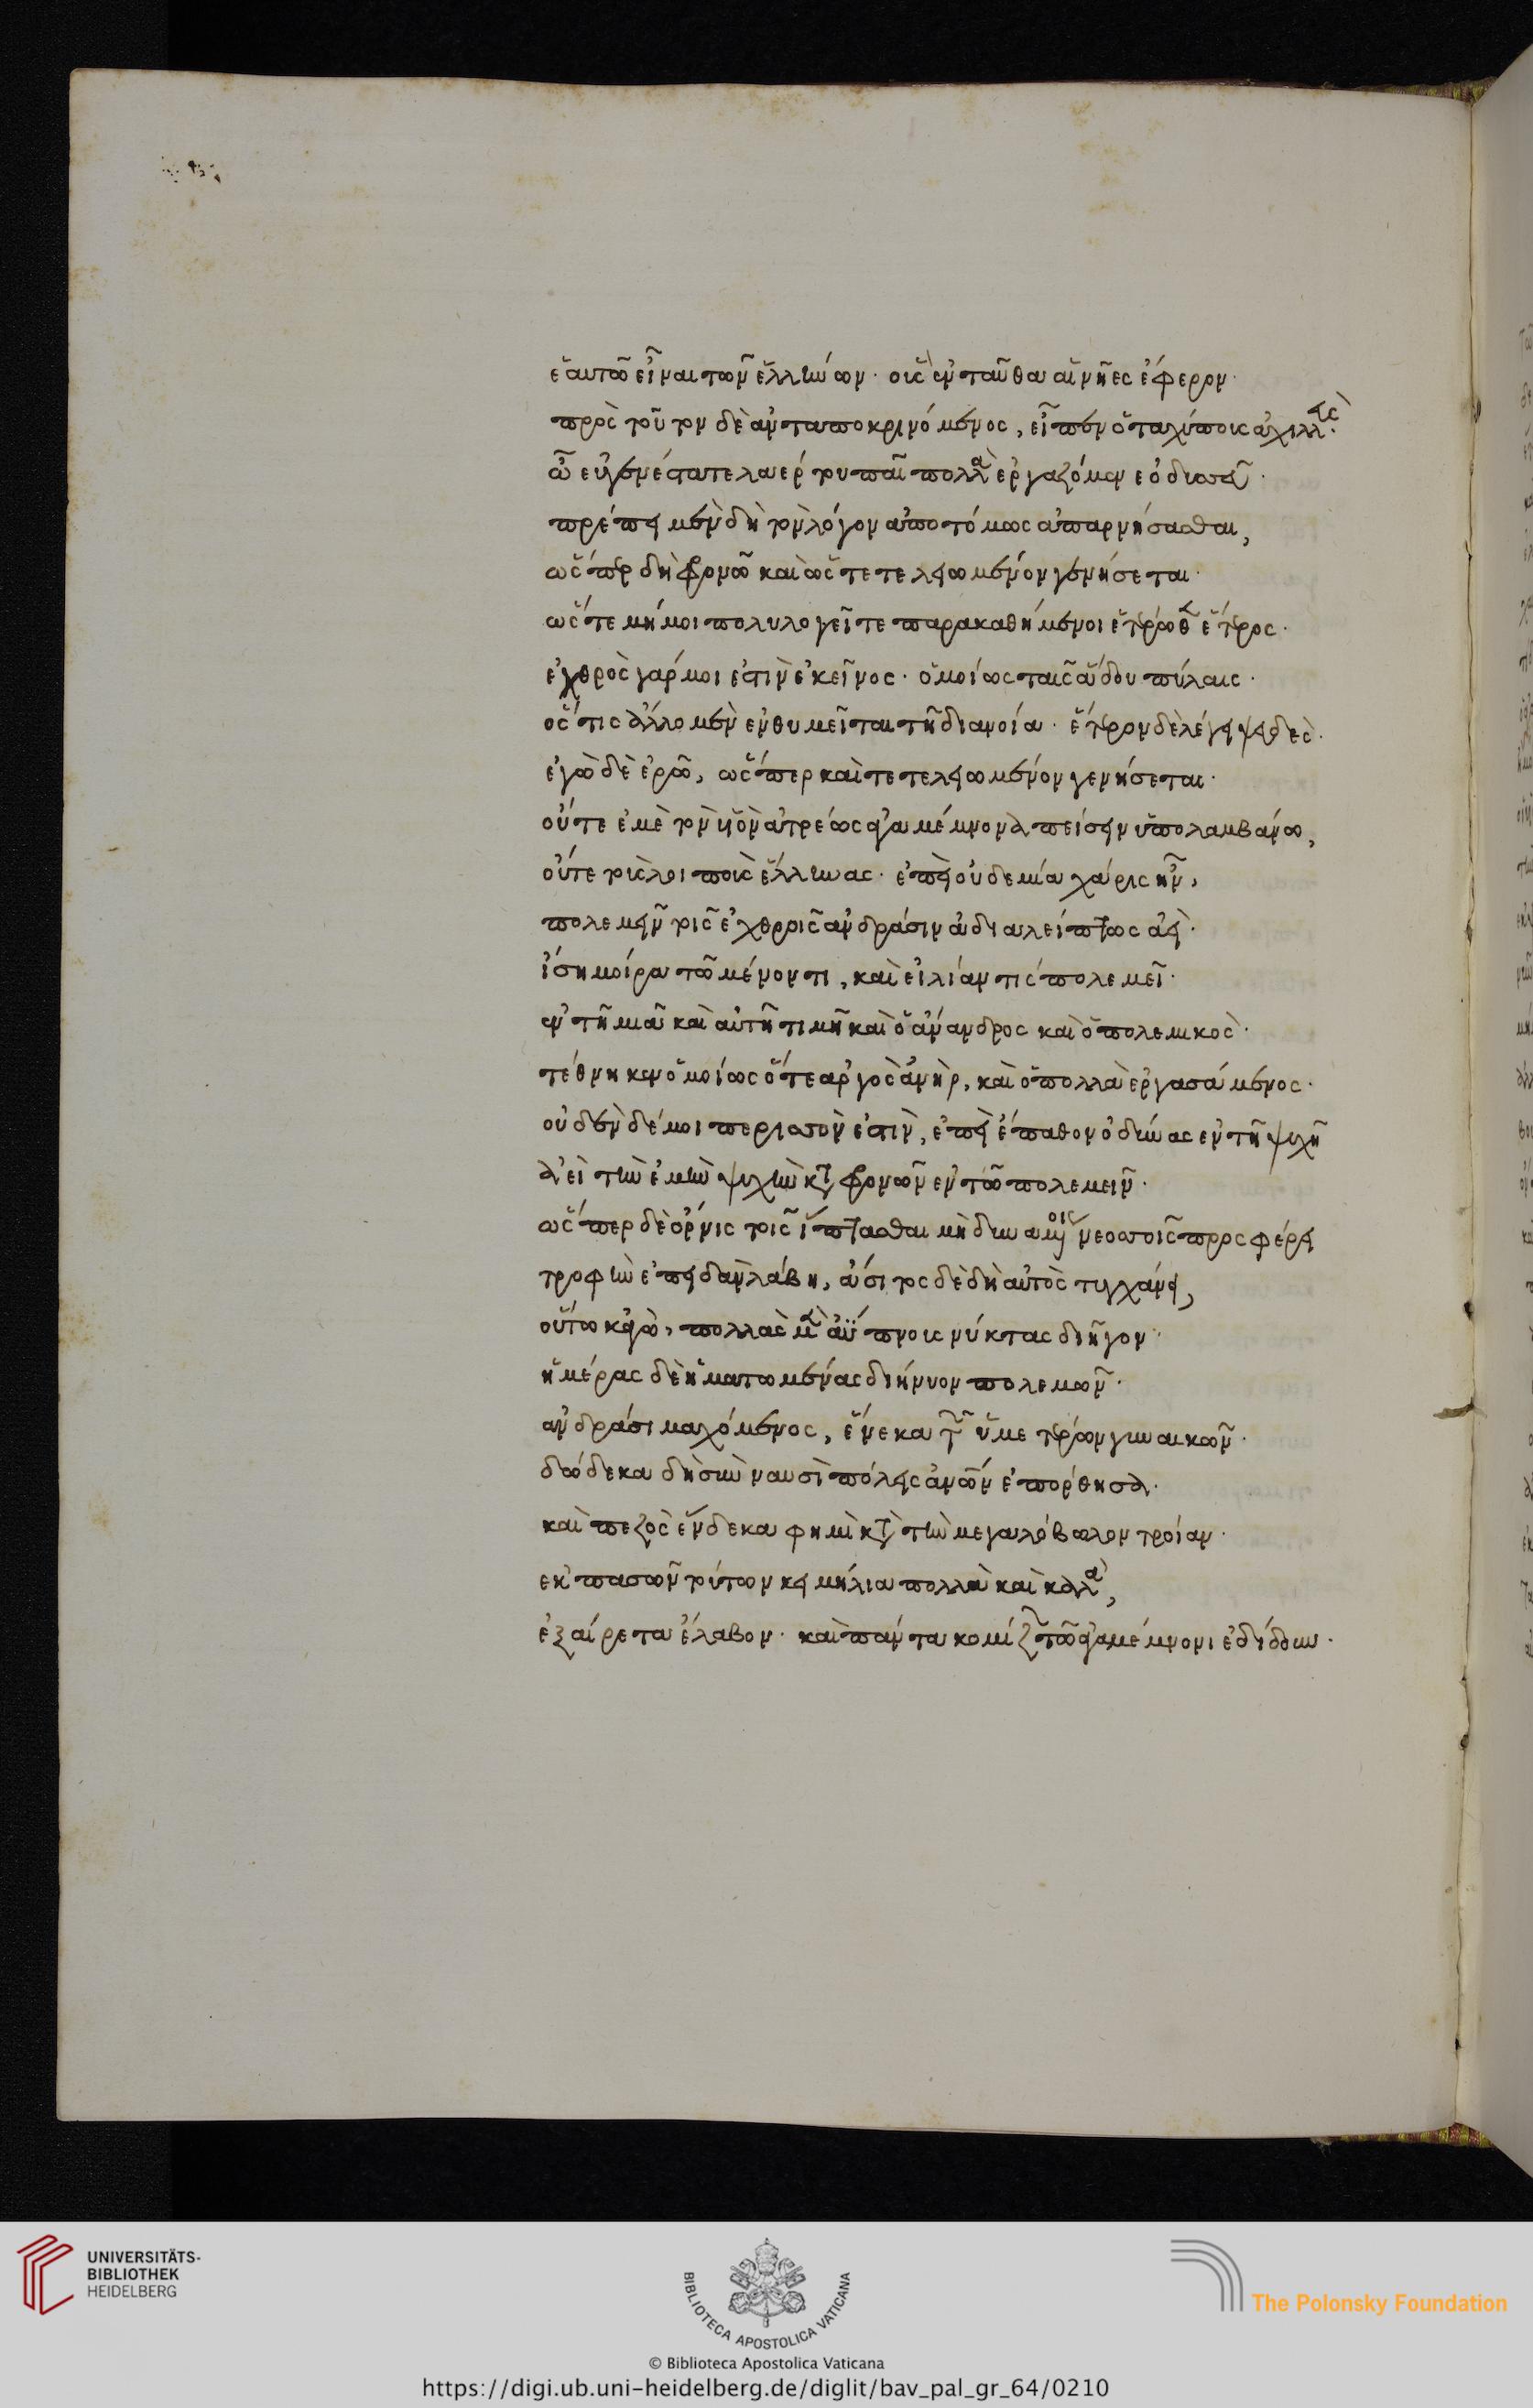 ἑαυτῶ εἶναι τῶν ἑλλήνων· οὓς ἐνταῦθα αἱ νῆες ἔφερον·
πρὸς τοῦτον δὲ ἀνταποκρινόμενος, εἶπεν ὁ ταχύπους ἀχιλλεύς·
ὦ εὐγενέστατε λαέρτου παῖ πολλὰ ἐργαζόμενε ὀδυσσεῦ·
πρέπει μὲν δὴ τὸν λόγον ἀποτόμως ἀπαρνήσασθαι,
ὥσπερ δὴ φρονῶ καὶ ὡς τετελειωμένον γενήσεται·
ὥστε μή μοι πολυλογεῖτε παρακαθήμενοι ἑτέρωθεν ἕτερος·
ἐχθρὸς γάρ μοι ἐστὶν ἐκεῖνος· ὁμοίως ταῖς ἅδου πύλαις·
ὅστις ἄλλο μὲν ἐνθυμεῖται τῆ διανοία· ἕτερον δὲ λέγει ψευδές·
ἐγὼ δὲ ἐρῶ, ὥσπερ καὶ τετελειωμένον γενήσεται·
οὔτε ἐμὲ τὸν υἱὸν ἀτρέως ἀγαμέμνονα πείσειν ὑπολαμβάνω,
οὔτε τοὺς λοιποὺς ἕλληνας· ἐπεὶ οὐδεμία χάρις ἦν,
πολεμεῖν τοῖς ἐχθροῖς ἀνδράσιν ἀδιαλείπτως ἀεί·
ἴση μοίρα τῶ μένοντι, καὶ εἰ λίαν τις πολεμεῖ·
ἐν τῆ μιᾶ καὶ αὐτῆ τιμῆ καὶ ὁ ἄνανδρος καὶ ὁ πολεμικός·
τέθνηκεν ὁμοίως ὅτε ἀργὸς ἀνήρ, καὶ ὁ πολλὰ ἐργασάμενος·
οὐδὲν δέ μοι περισσόν ἐστιν, ἐπεὶ ἔπαθον ὀδύνας ἐν τῆ ψυχῆ
ἀεὶ τὴν ἐμὴν ψυχὴν κατα φρονῶν ἐν τῶ πολεμεῖν·
ὥσπερ δὲ ὄρνις τοῖς ἵπτασθαι μὴ δυναμένοις νεοσσοῖς προσφέρει
τροφὴν ἐπειδὰν λάβη, ἄσιτος δὲ δὴ αὐτὸς τυγχάνει,
οὕτω κἀγὼ, πολλὰς μὲν ἀΰπνους νύκτας διῆγον·
ἡμέρας δὲ ἡματωμένας διήνυον πολεμῶν·
ἀνδράσι μαχόμενος, ἕνεκα τῶν ὑμετέρων γυναικῶν·
δώδεκα δὴ σὺν ναυσὶ πόλεις ἀνῶν ἐπόρθησα·
καὶ πεζὸς ἕνδεκα φημὶ κατὰ τὴν μεγαλόβωλον τροίαν·
ἐκ πασῶν τούτων κειμήλια πολλὰ καὶ καλὰ,
ἐξαίρετα ἔλαβον· καὶ πάντα κομίζων τῶ ἀγαμέμνονι ἐδίδουν·
UNIVERSITÄTS-
BIBLIOTHEK
HEIDELBERG
BIBLIOTECA APOSTOLICA VATICANA
The Polonsky Foundation
© Biblioteca Apostolica Vaticana
https://digi.ub.uni-heidelberg.de/diglit/bav_pal_gr_64/0210